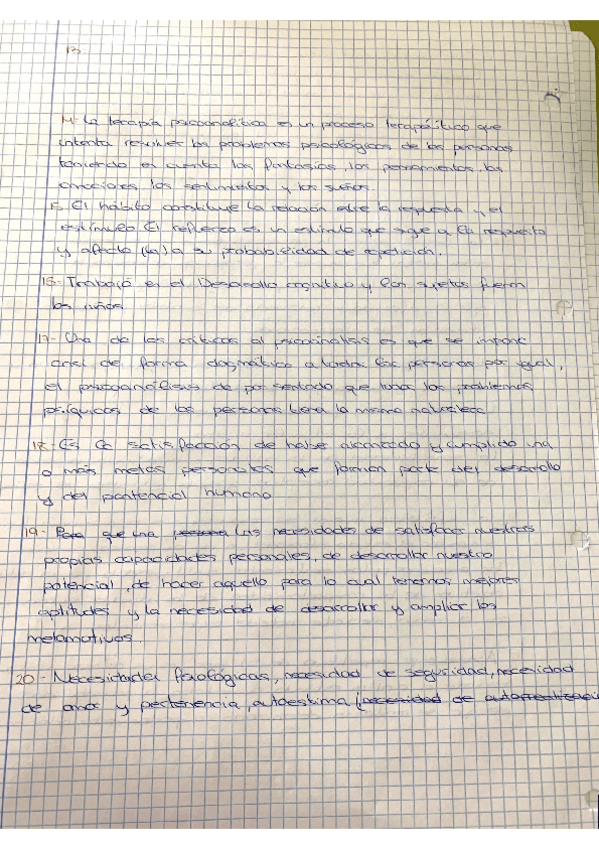 13.
14- La terapia psicoanalítica es un proceso terapéutico que
intenta resolver los problemas psicológicos de las personas
teniendo en cuenta las fantasías, los pensamientos, las
emociones, los sentimientos y los sueños.
15- El hábito constituye la relación entre la respuesta y el
estímulo. El reflejo es un estímulo que sigue a la respuesta
y afecta (la) a su probabilidad de repetición.
16- Trabajó en el Desarrollo cognitivo y los sujetos fueron
los niños
17- Una de las críticas al psicoanálisis es que se impone
de forma dogmática a todas las personas por igual,
el psicoanálisis da por sentado que todos los problemas
psíquicos de las personas tiene la misma naturaleza
18- Es la satisfacción de haber alcanzado y cumplido una
o más metas personales que forman parte del desarrollo
y del pontencial humano
19- Para que una persona Las necesidades de satisfacer nuestras
propias capacidades personales, de desarrollar nuestro
potencial, de hacer aquello para lo cual tenemos mejores
aptitudes y la necesidad de desarrollar y ampliar los
metamotivos.
20- Necesidades fisiológicas, necesidad de seguridad, necesidad
de amor y pertenencia, autoestima (necesidad de autorrealización